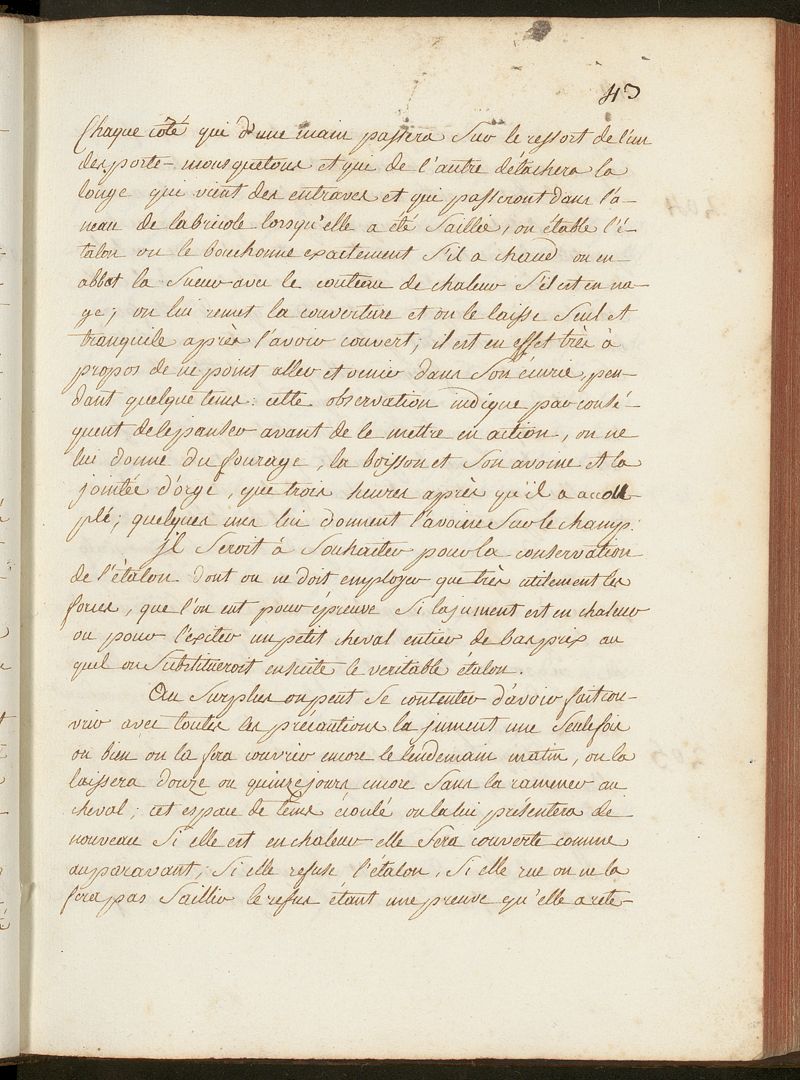 43
Chaque coté qui d'une main passera Sur le ressort de l'un
des porte-mousquetons et que de l'autre détachera la
longe qui vient des entraves et qui passeront dans l'a-
neau de la bricole lorsqu'elle a été Saillie, on établé l'é-
talon on le bouchonne exactement S'il a chaud on en
abbat la Sueur avec le couteau de chaleur S'il est en na-
ge; on lui remet la couverture et on le laisse Seul et
tranquile après l'avoir couvert; il est en effet très à
propos de ne point aller et venir dans Son écurie pen-
dant quelque tems: cette observation indique par consé-
quent de le panser avant de le mettre en action, on ne
lui donne du fourage, la boisson et Son avoine et la
jointée d'orge, que trois heures après qu'il a accou-
plé; quelques uns lui donnent l'avoine Sur le champ.
jl Seroit à Souhaiter pour la conservation
de l'étalon dont on ne doit employer que très utilement les
forces, que l'on eut pour épreuve Si la jument est en chaleur
ou pour l'exiter un petit cheval entier de bas prix au
quel on Substitueroit ensuite le veritable étalon.
Au Surplus on peut Se contenter d'avoir fait cou-
vrir avec toutes les précautions la jument une Seule fois
ou bien on la fera couvrir encore le lendemain matin, on la
laissera douze ou quinze jours encore Sans la ramener au
cheval; cet espace de tems écoulé on la lui présentera de
nouveau Si elle est en chaleur elle Sera couverte comme
auparavant, Si elle refuse l'étalon, Si elle rue on ne la
fera pas Saillir le refus étant une preuve qu'elle a rete-